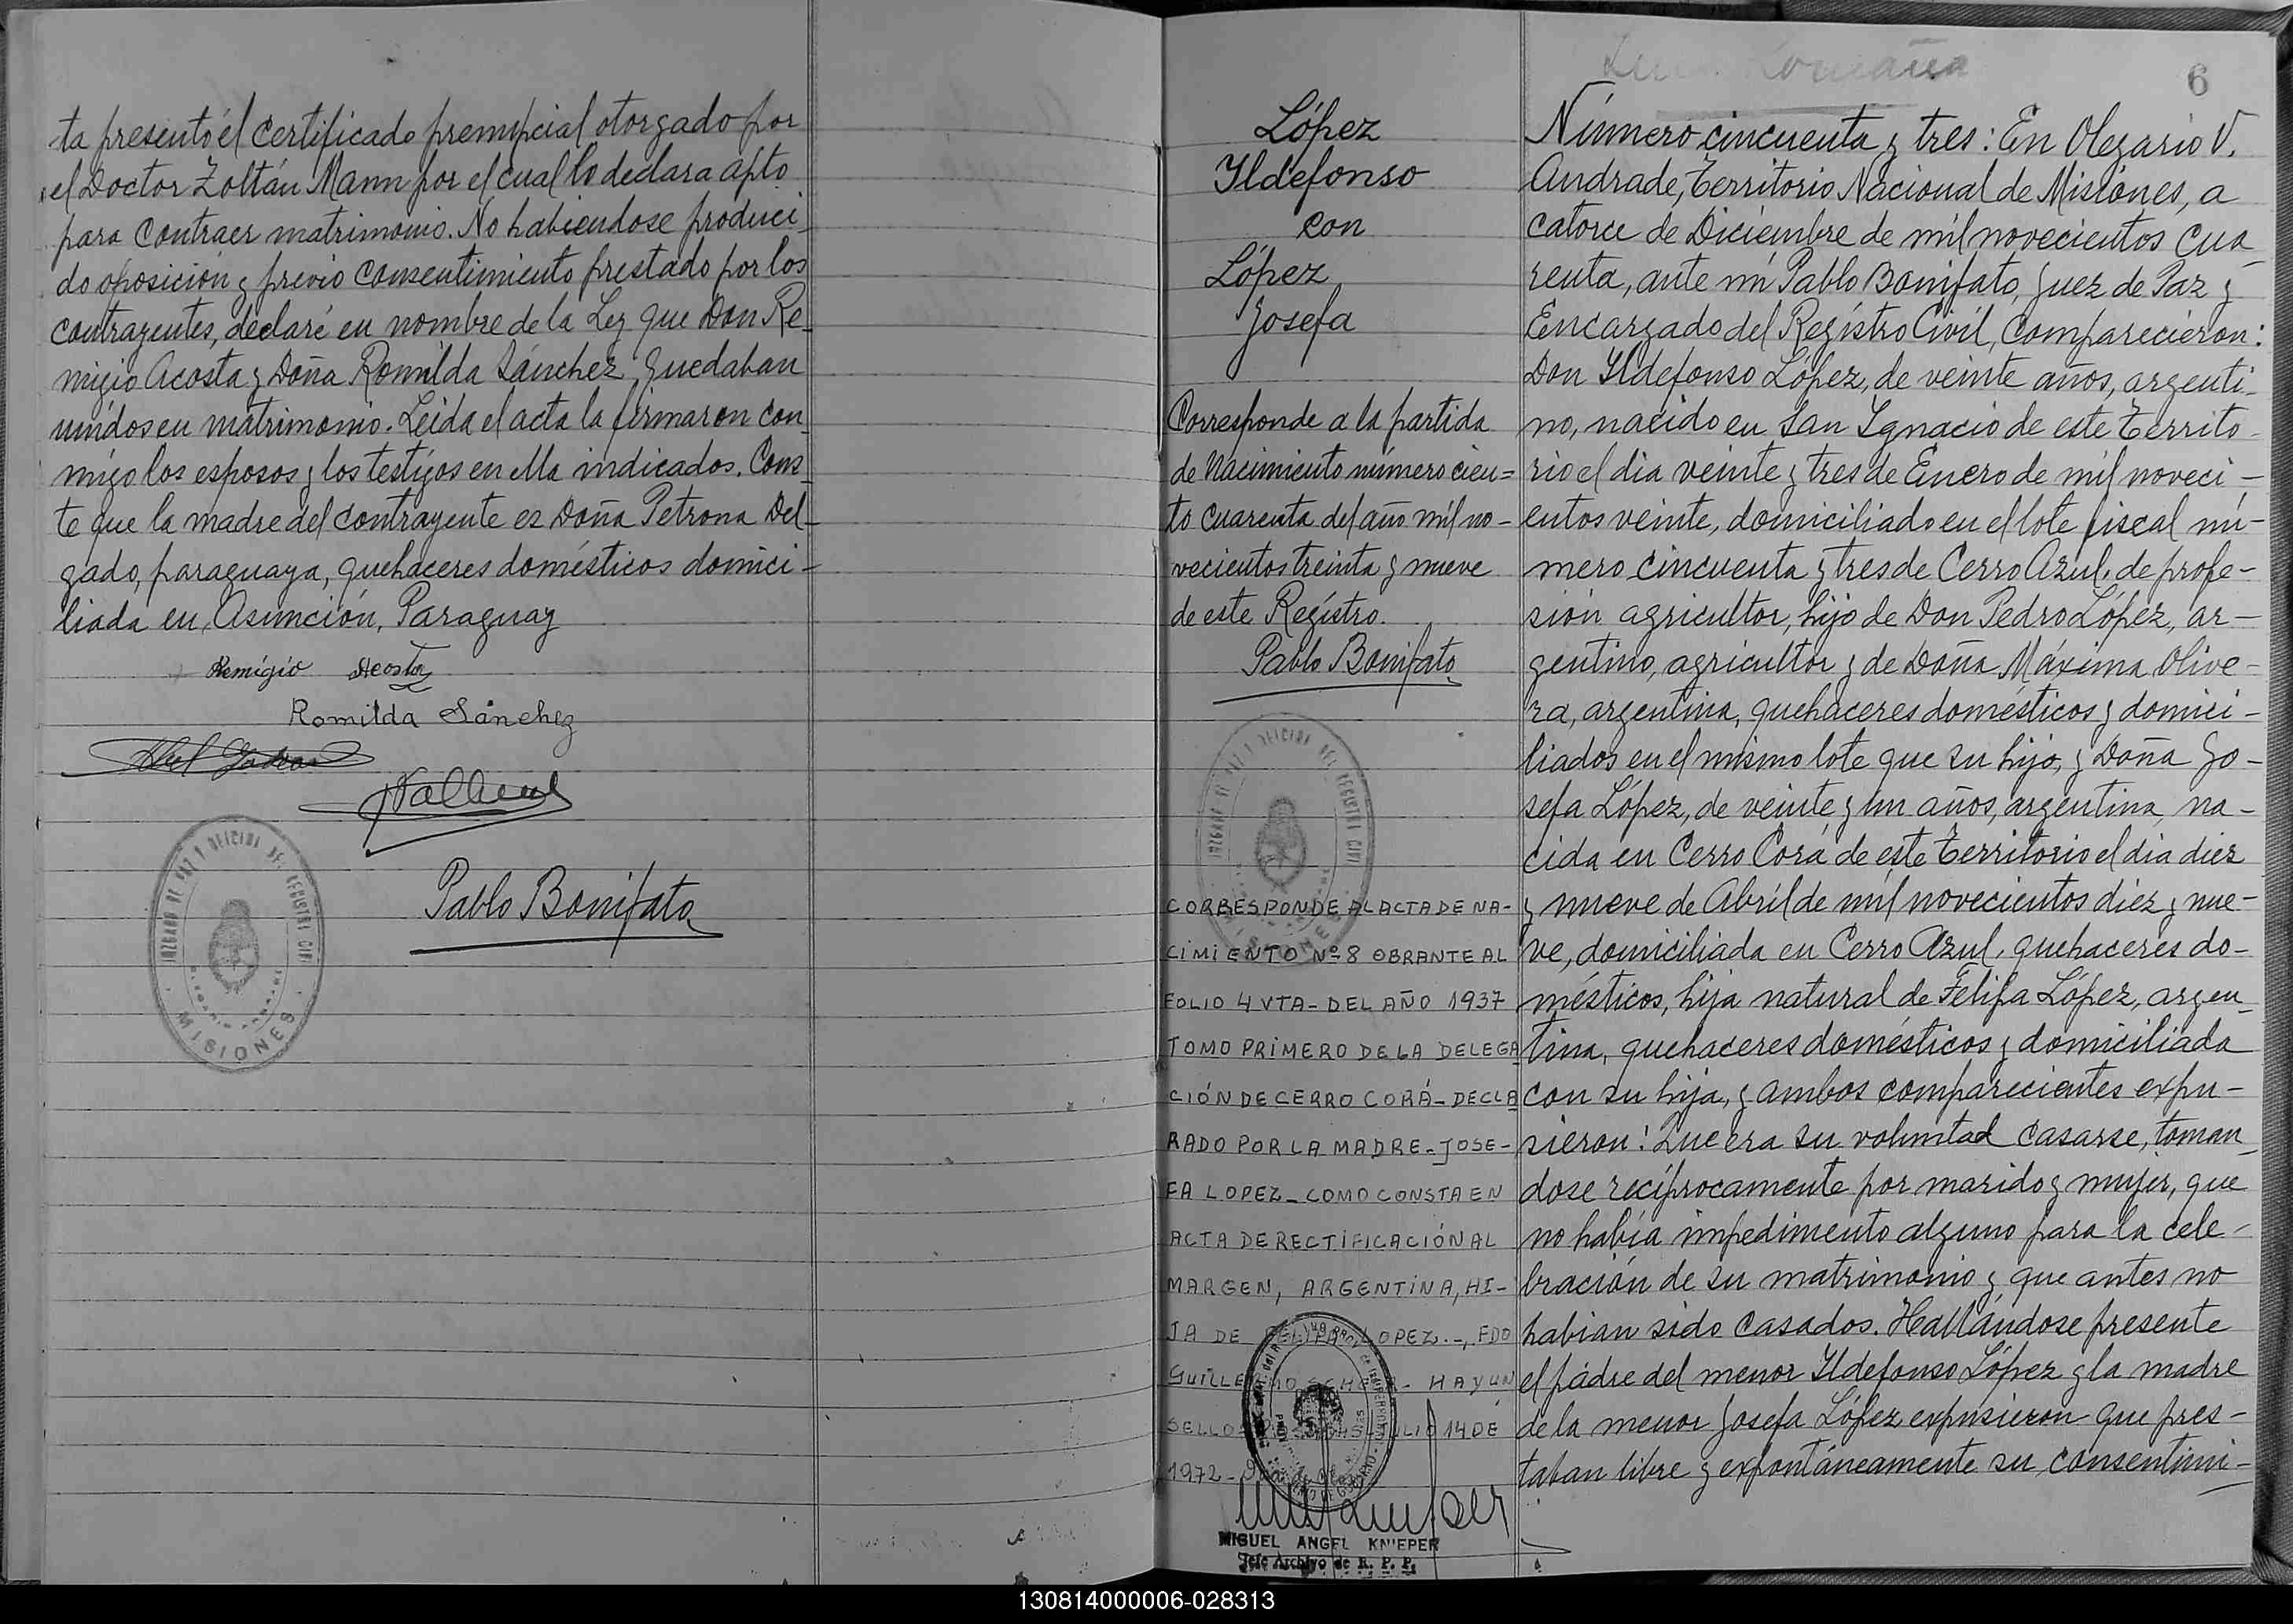 ta presentó el certificado prenupcial otorgado por
el Doctor Zoltán Mann por el cual lo declara apto
para contraer matrimonio. No habiendose produci-
do oposición y previo consentimiento prestado por los
contrayentes, declaré en nombre de la Ley que Don Re-
migio Acosta y Doña Romilda Sánchez quedaban
unidos en matrimonio. Leida el acta la firmaron con-
migo los esposos y los testigos en ella indicados. Cons-
te que la madre del contrayente es Doña Petrona Del-
gado, paraguaya, quehaceres domésticos domici-
liada en Asunción, Paraguay
Remigio Acosta
Romilda Sánchez
Pablo Bonifato
JUZGADO DE PAZ Y OFICINA DEL REGISTRO CIVIL
MISIONES
López
Ildefonso
con
López
Josefa
Corresponde a la partida
de Nacimiento número cien=
to cuarenta del año mil no-
vecientos treinta y nueve
de este Registro.
Pablo Bonifato
JUZGADO DE PAZ Y OFICINA DEL REGISTRO CIVIL
CORRESPONDE AL ACTA DE NA-
CIMIENTO Nº 8 OBRANTE AL
FOLIO 4 VTA- DEL AÑO 1937
TOMO PRIMERO DE LA DELEGA
CIÓN DE CERRO CORÁ- DECLA
RADO POR LA MADRE- JOSE-
FA LOPEZ- COMO CONSTA EN
ACTA DE RECTIFICACIÓN AL
MARGEN, ARGENTINA, HI-
JA DE FELIPA LOPEZ.-, FDO
GUILLERMO - HAY UN
SELLO JULIO 14 DE
1972-
MIGUEL ANGEL KNIEPER
Jefe Archivo de R. P. P.
6
Número cincuenta y tres: En Olegario V.
Andrade, Territorio Nacional de Misiones, a
catorce de Diciembre de mil novecientos cua-
renta, ante mí Pablo Bonifato, Juez de Paz y
Encargado del Registro Civil, comparecieron:
Don Ildefonso López, de veinte años, argenti-
no, nacido en San Ignacio de este Territo-
rio el dia veinte y tres de Enero de mil noveci-
entos veinte, domiciliado en el lote fiscal nú-
mero cincuenta y tres de Cerro Azul, de profe-
sión agricultor, hijo de Don Pedro López, ar-
gentino, agricultor y de Doña Máxima Olive-
ra, argentina, quehaceres domésticos y domici-
liados en el mismo lote que su hijo, y Doña Jo-
sefa López, de veinte y un años, argentina, na-
cida en Cerro Corá de este Territorio el dia diez
y nueve de Abril de mil novecientos diez y nue-
ve, domiciliada en Cerro Azul, quehaceres do-
mésticos, hija natural de Felipa López, argen-
tina, quehaceres domésticos y domiciliada
con su hija, y ambos comparecientes expu-
sieron: Que era su voluntad casarse, toman-
dose recíprocamente por marido y mujer, que
no había impedimento alguno para la cele-
bración de su matrimonio y que antes no
habian sido casados. Hallándose presente
el padre del menor Ildefonso López y la madre
de la menor Josefa López expusieron que pres-
taban libre y expontáneamente su consentimi-
130814000006-028313